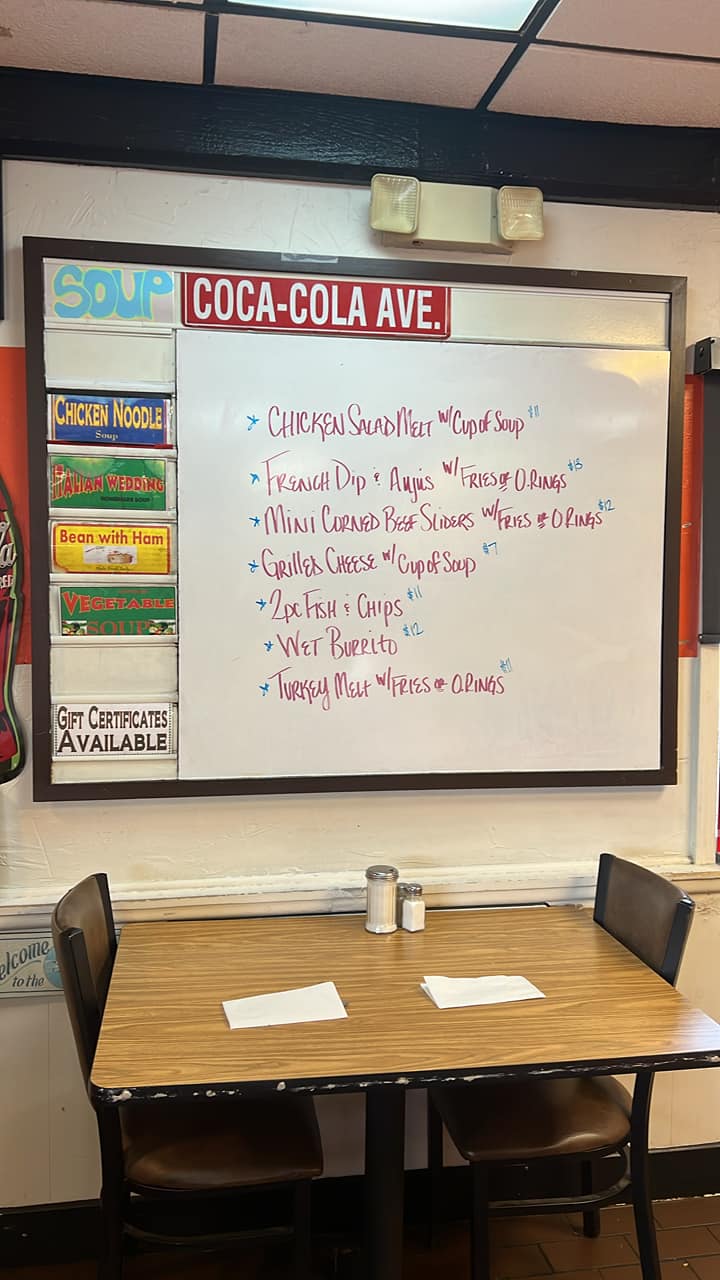 SOUP
COCA-COLA AVE.
CHICKEN NOODLE
Soup
ITALIAN WEDDING
HOMEMADE SOUP
Bean with Ham
VEGETABLE
SOUP
GIFT CERTIFICATES
AVAILABLE
* CHICKEN SALAD MELT W/CUP OF SOUP $11
* FRENCH DIP & AUJUS W/FRIES OR O.RINGS $13
* MINI CORNED BEEF SLIDERS W/FRIES OR O RINGS $12
* GRILLED CHEESE W/CUP OF SOUP $7
* 2PC FISH & CHIPS $11
* WET BURRITO $12
* TURKEY MELT W/FRIES OR O.RINGS $11
elcome
to the